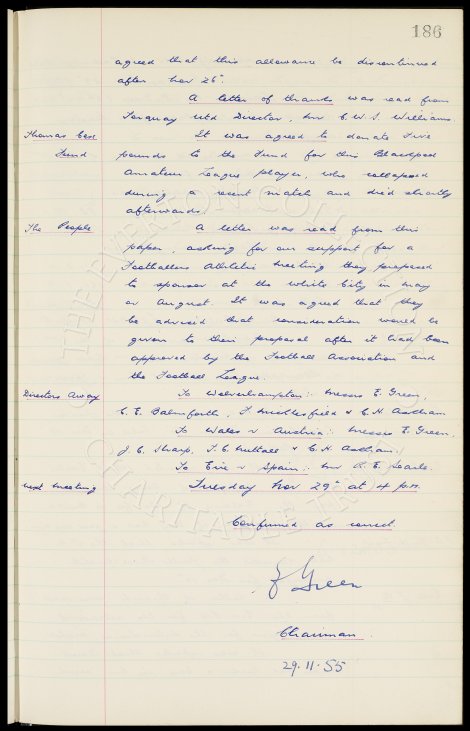 186
agreed that this allowance be discontinued
after Nov 26th.
A letter of thanks was read from
Torquay Utd Director, Mr C.W.S. Williams.
Thomas East Fund
It was agreed to donate Five
pounds to the Fund for this Blackpool
Amateur League player, who collapsed
during a recent match and died shortly
afterwards.
The People
A letter was read from this
paper, asking for our support for a
Footballers Athletic Meeting they proposed
to sponsor at the White City in May
or August. It was agreed that they
be advised that consideration would be
given to their proposal after it had been
approved by the Football Association and
the Football League.
Directors Away
To Wolverhampton: Messrs E. Green,
C. E. Balmforth, F. Micklesfield & C. H. Askham
To Wales v Austria: Messrs E. Green,
J. C. Sharp, T. C. Nuttall & C. H. Askham
To Eire v Spain: Mr R. E. Searle.
Next Meeting
Tuesday Nov 29th at 4 p.m.
Confirmed as correct
E Green
Chairman.
29.11.55
THE EVERTON COLLECTION
CHARITABLE TRUST